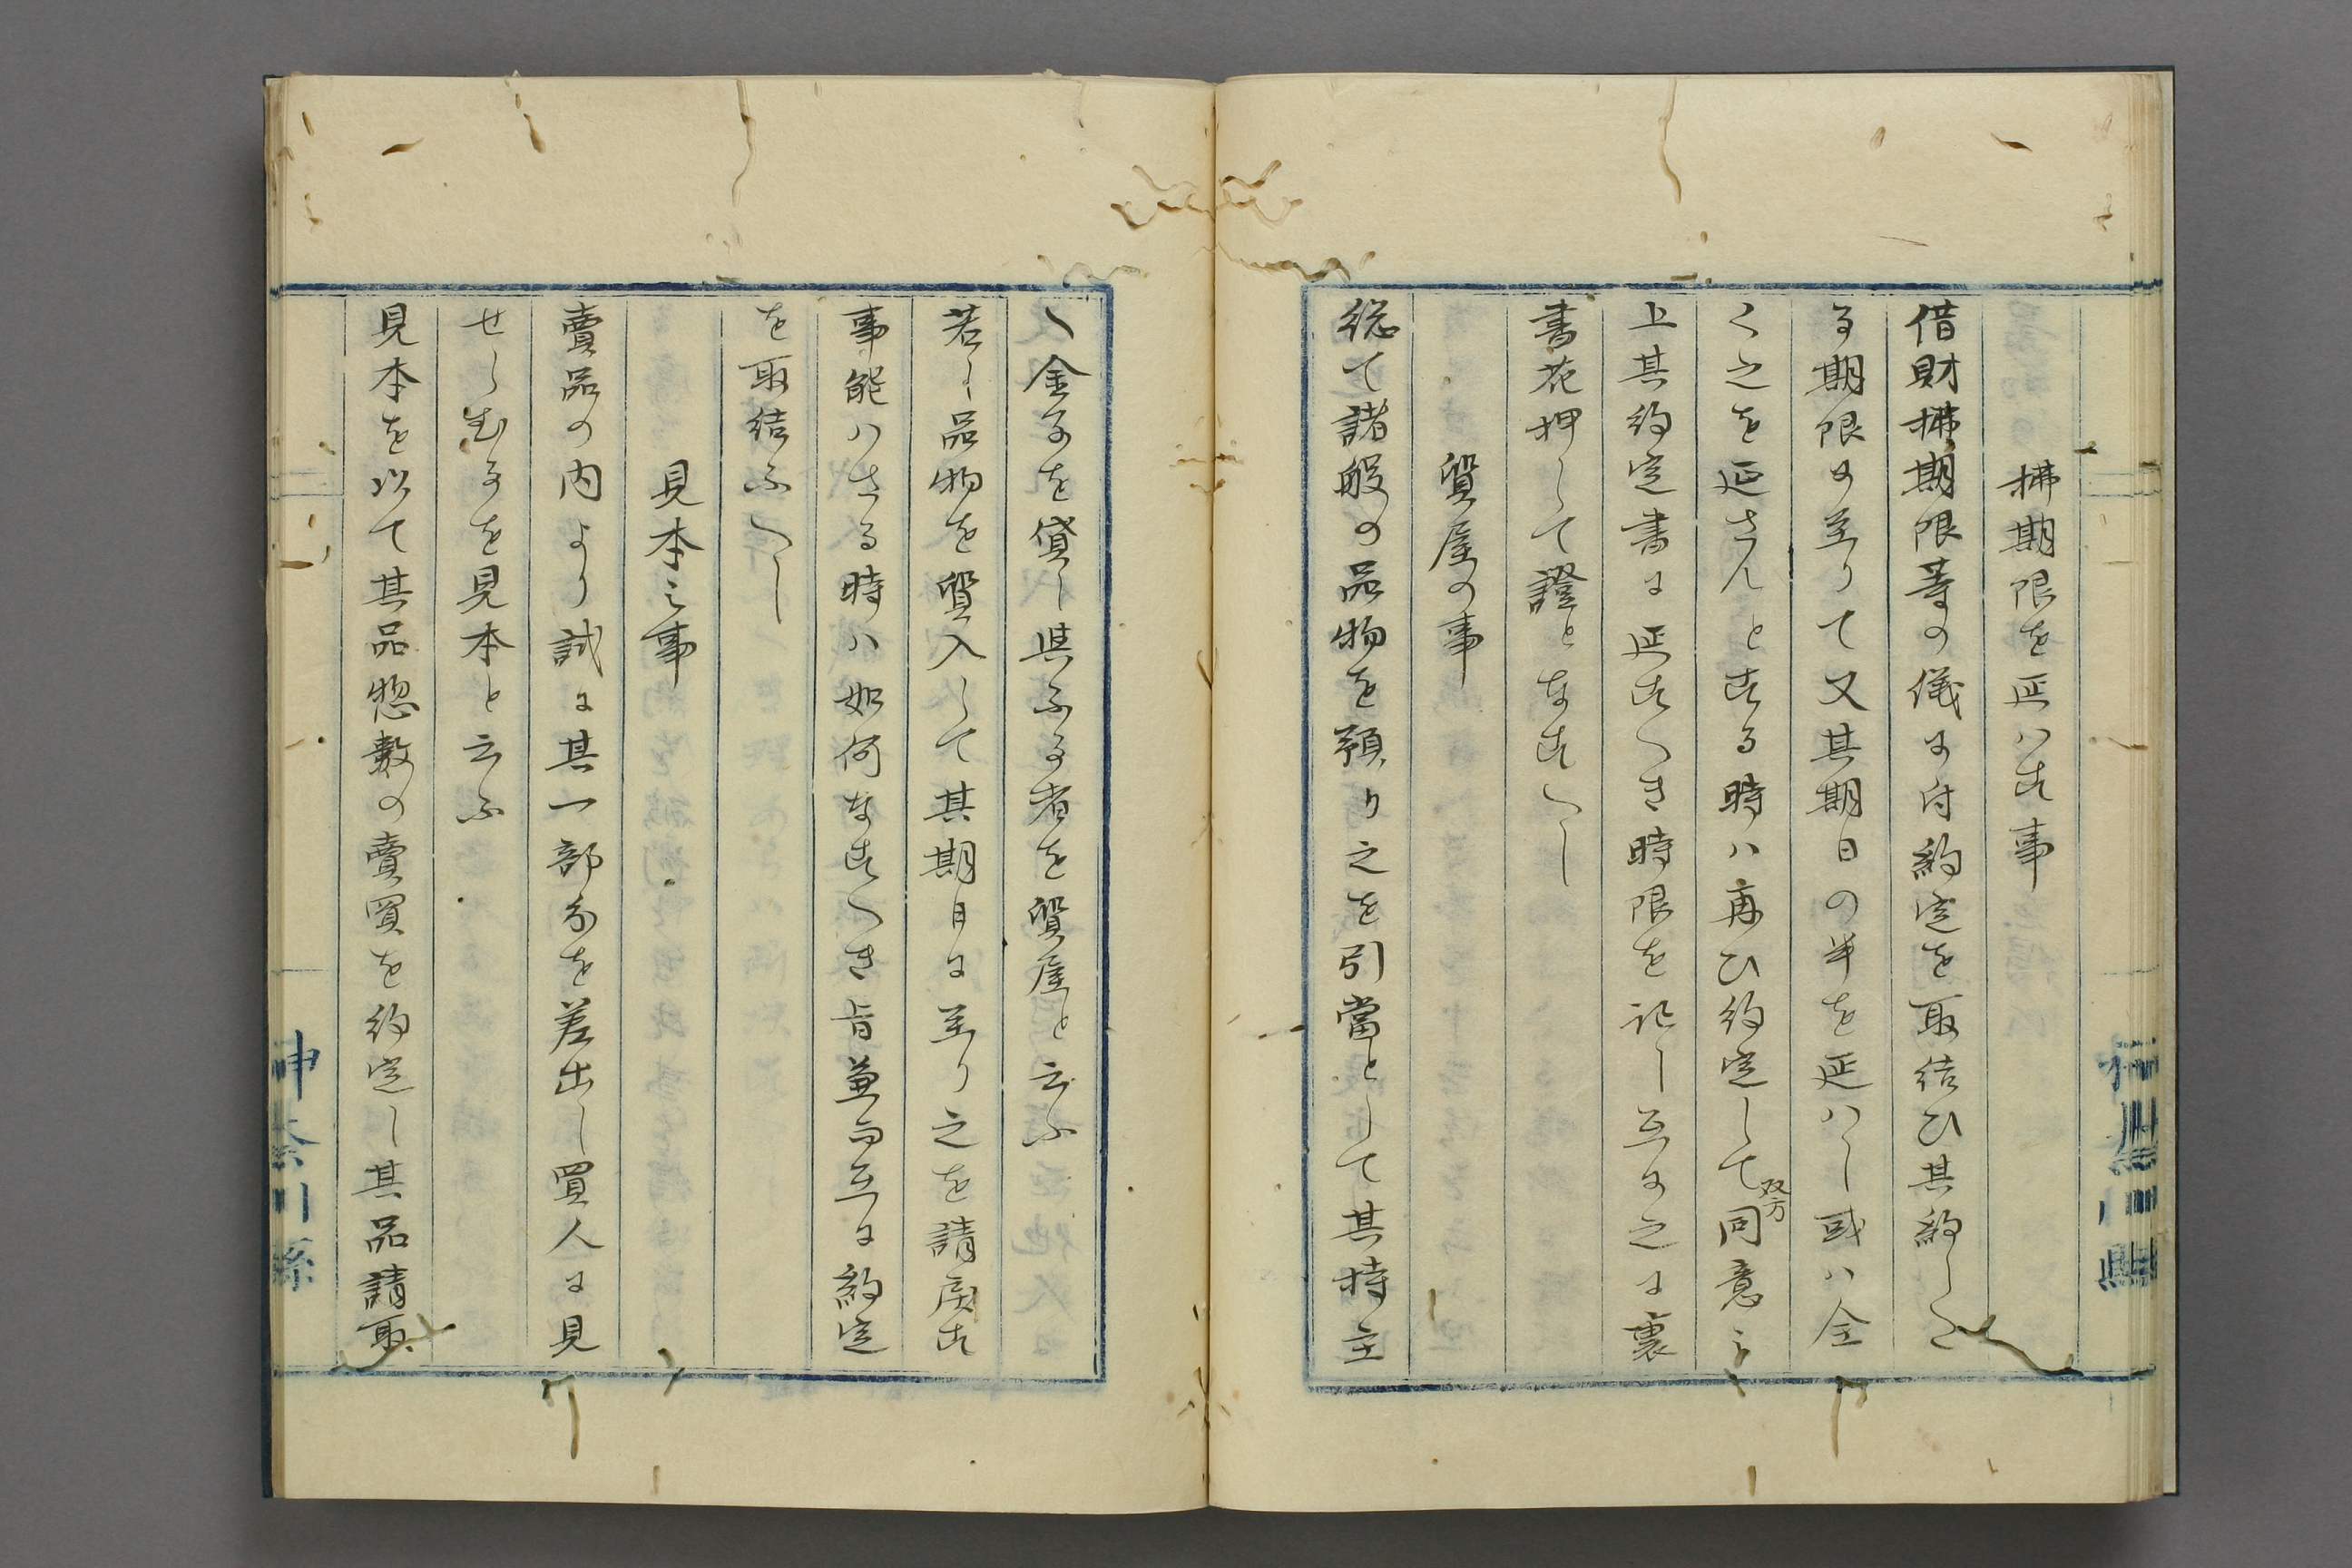 拂期限を延ハす事
借財拂期限等の儀に付約定を取結ひ其約した
る期限に至りて又其期日の半を延ハし或ハ全
く之を延さんとする時ハ再ひ約定して双方同意之
上其約定書に延すへき時限を記し互に之に裏
書花押して證となすへし
質屋の事
総て諸般の品物を預り之を引當として其持主
へ金子を貸し與ふる者を質屋と云ふ
若し品物を質入して其期日に至り之を請戻す
事能ハさる時ハ如何なすへき旨兼而互に約定
を取結ふへし
見本之事
賣品の内より試に其一部分を差出し買人に見
せしむるを見本と云ふ
見本を以て其品惣數の賣買を約定し其品請取
神奈川縣